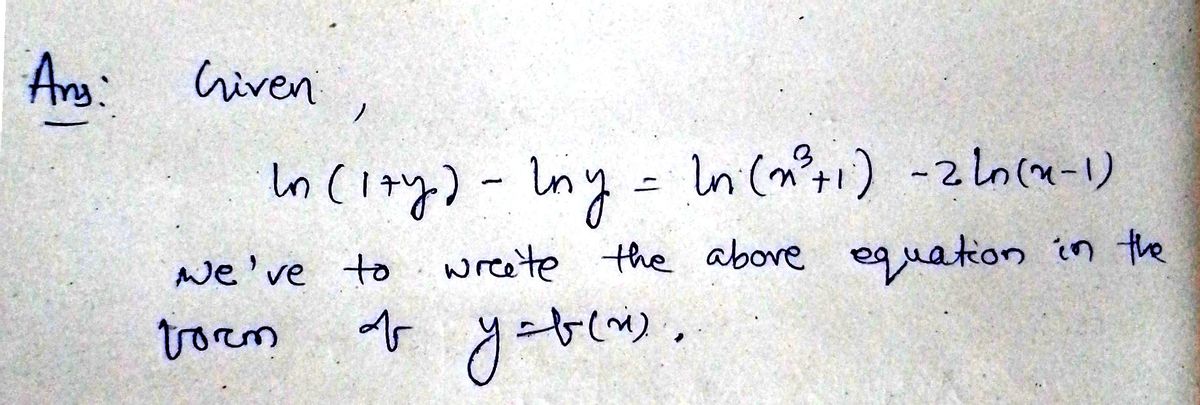 Ans: Given,
ln(1+y) - lny = ln(x³+1) - 2ln(x-1)
we've to write the above equation in the
form of y=f(x).